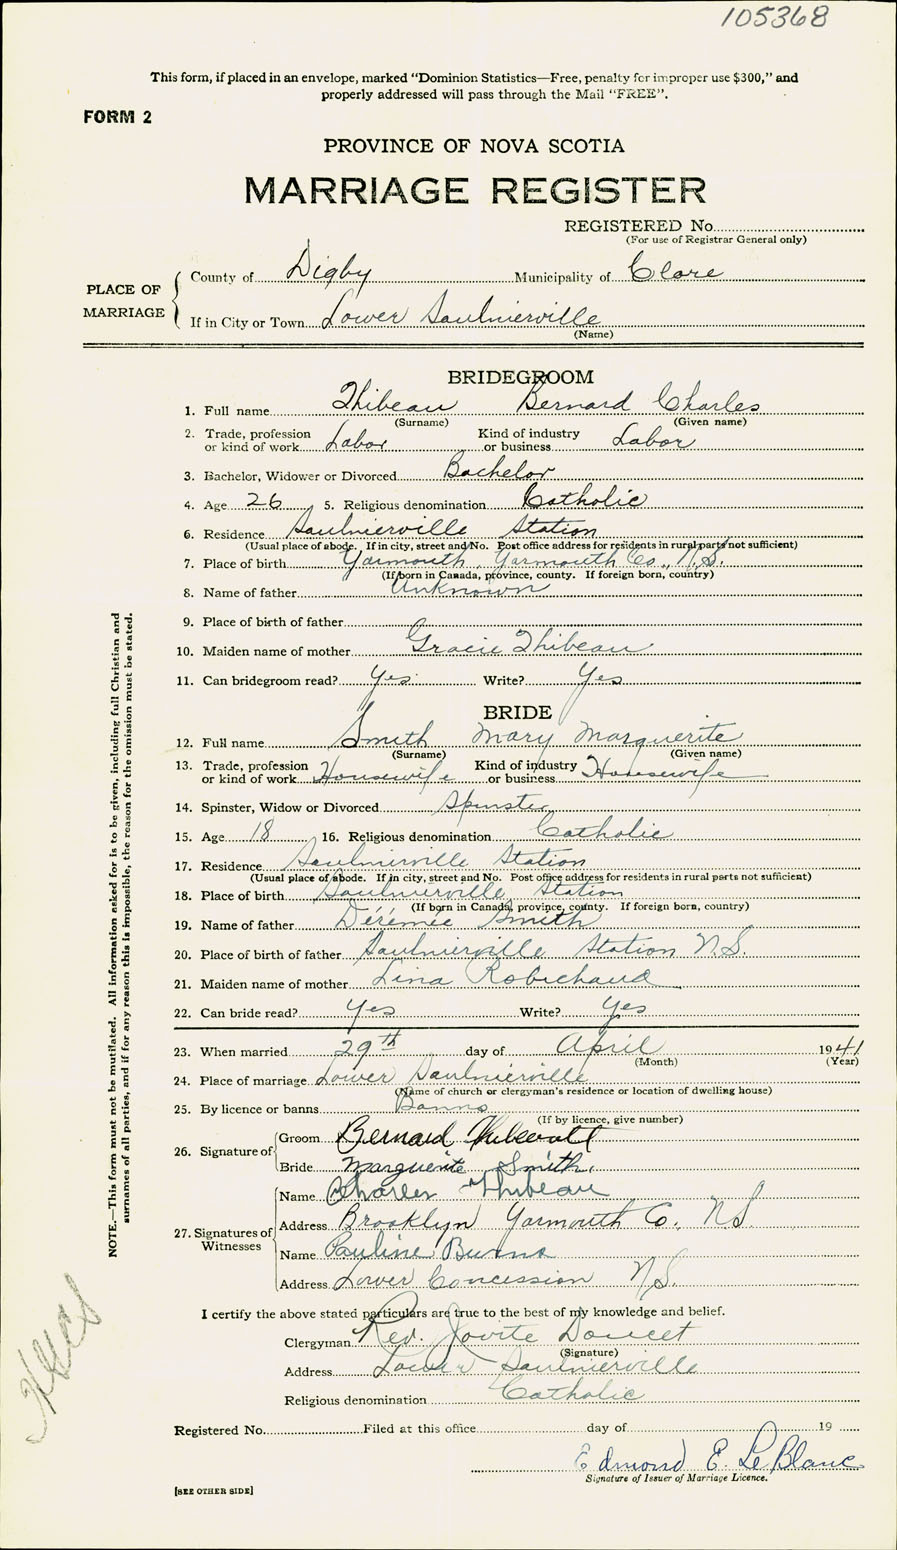 105368
This form, if placed in an envelope, marked “Dominion Statistics—Free, penalty for improper use $300,” and
properly addressed will pass through the Mail “FREE”.
FORM 2
PROVINCE OF NOVA SCOTIA
MARRIAGE REGISTER
REGISTERED No.
(For use of Registrar General only)
PLACE OF MARRIAGE
County of Digby Municipality of Clare
If in City or Town Lower Saulnierville
(Name)
BRIDEGROOM
1. Full name Thibeau Bernard Charles
(Surname) (Given name)
2. Trade, profession or kind of work Labor Kind of industry or business Labor
3. Bachelor, Widower or Divorced Bachelor
4. Age 26 5. Religious denomination Catholic
6. Residence Saulnierville Station
(Usual place of abode. If in city, street and No. Post office address for residents in rural parts not sufficient)
7. Place of birth Yarmouth, Yarmouth Co., N.S.
(If born in Canada, province, county. If foreign born, country)
8. Name of father Unknown
9. Place of birth of father
10. Maiden name of mother Gracie Thibeau
11. Can bridegroom read? Yes Write? Yes
BRIDE
12. Full name Smith Mary Marguerite
(Surname) (Given name)
13. Trade, profession or kind of work Housewife Kind of industry or business Housewife
14. Spinster, Widow or Divorced Spinster
15. Age 18 16. Religious denomination Catholic
17. Residence Saulnierville Station
(Usual place of abode. If in city, street and No. Post office address for residents in rural parts not sufficient)
18. Place of birth Saulnierville Station
(If born in Canada, province, county. If foreign born, country)
19. Name of father Dérémée Smith
20. Place of birth of father Saulnierville Station N.S.
21. Maiden name of mother Lina Robichaud
22. Can bride read? Yes Write? Yes
23. When married 29th day of April 1941
(Month) (Year)
24. Place of marriage Lower Saulnierville
(Name of church or clergyman's residence or location of dwelling house)
25. By licence or banns Banns
(If by licence, give number)
26. Signature of
Groom Bernard
Bride Marguerite Smith.
27. Signatures of Witnesses
Name Charles Thibeau
Address Brooklyn Yarmouth Co. N.S.
Name Pauline Burns
Address Lower Concession N.S.
I certify the above stated particulars are true to the best of my knowledge and belief.
Clergyman Rev. Jovite Doucet
(Signature)
Address Lower Saulnierville
Religious denomination Catholic
Registered No. Filed at this office day of 19
Edmond E. LeBlanc
Signature of Issuer of Marriage Licence.
[SEE OTHER SIDE]
NOTE.—This form must not be mutilated. All information asked for is to be given, including full Christian and
surnames of all parties, and if for any reason this is impossible, the reason for the omission must be stated.